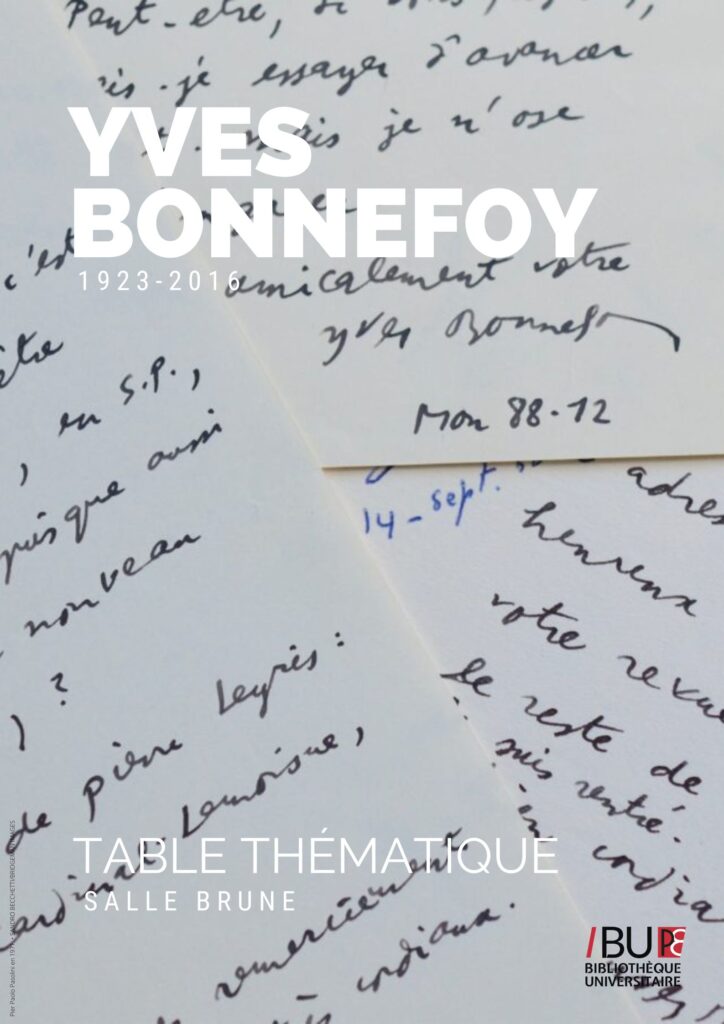 Peut-être, si
-je essayer d'avancer
mais je n'ose
YVES
BONNEFOY
1923-2016
c'est
amicalement votre
Yves Bonnefoy
en S.P.,
puisque aussi
Mon 88-12
14-Sept.
heureux
nouveau
votre revue
?
le reste de
suis rentré.
de Pierre Leyris :
Lemoine,
TABLE THÉMATIQUE
SALLE BRUNE
remercièrent
cordiaux.
/BUPE
BIBLIOTHÈQUE
UNIVERSITAIRE